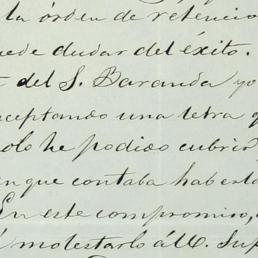 la órden de retencio
uede dudar del éxito.
del S. Baranda yo
ceptando una letra q
olo he podido cubrir,
en que contaba haberla
En este compromiso,
molestarlo á U. Sup